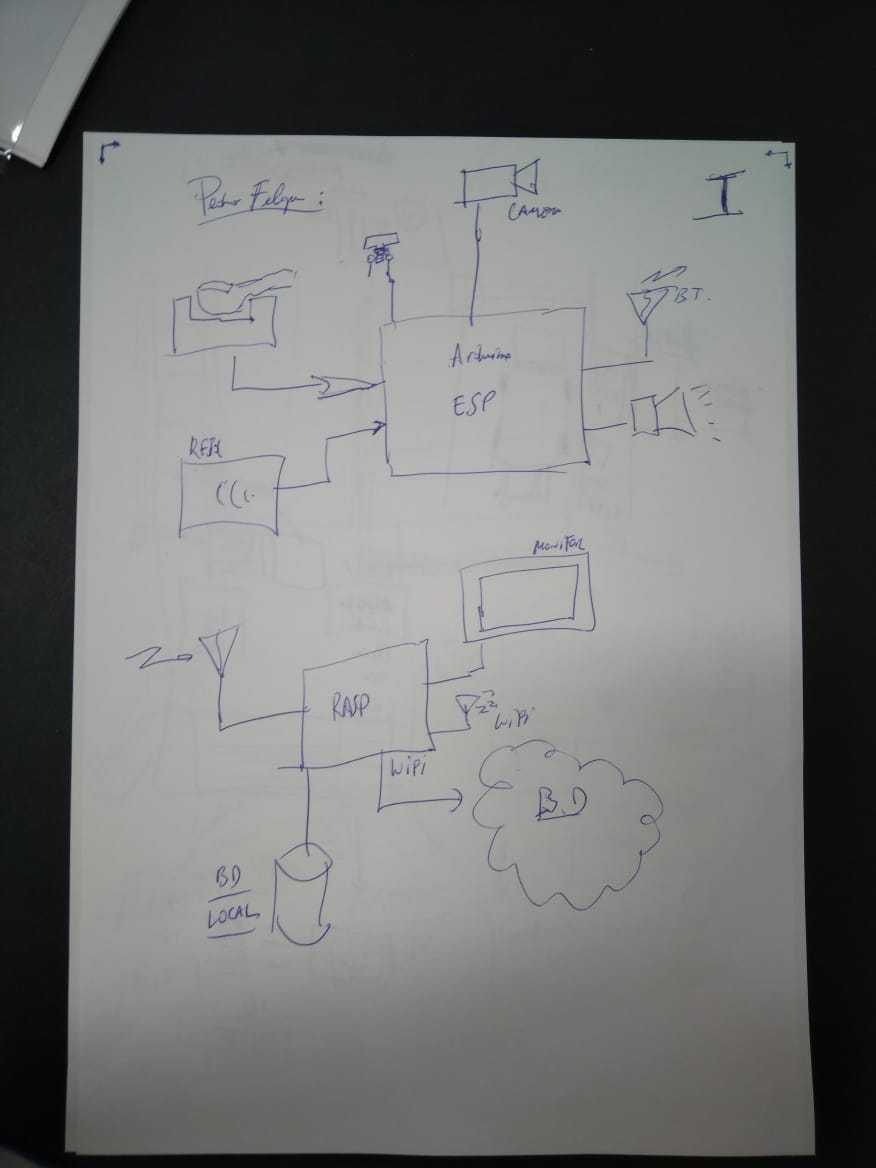 I
Pedro Felipe :
CAMERA
BT.
Arduino
ESP
RFID
MONITOR
RASP
WiFi
WiFi
B.D
BD
LOCAL